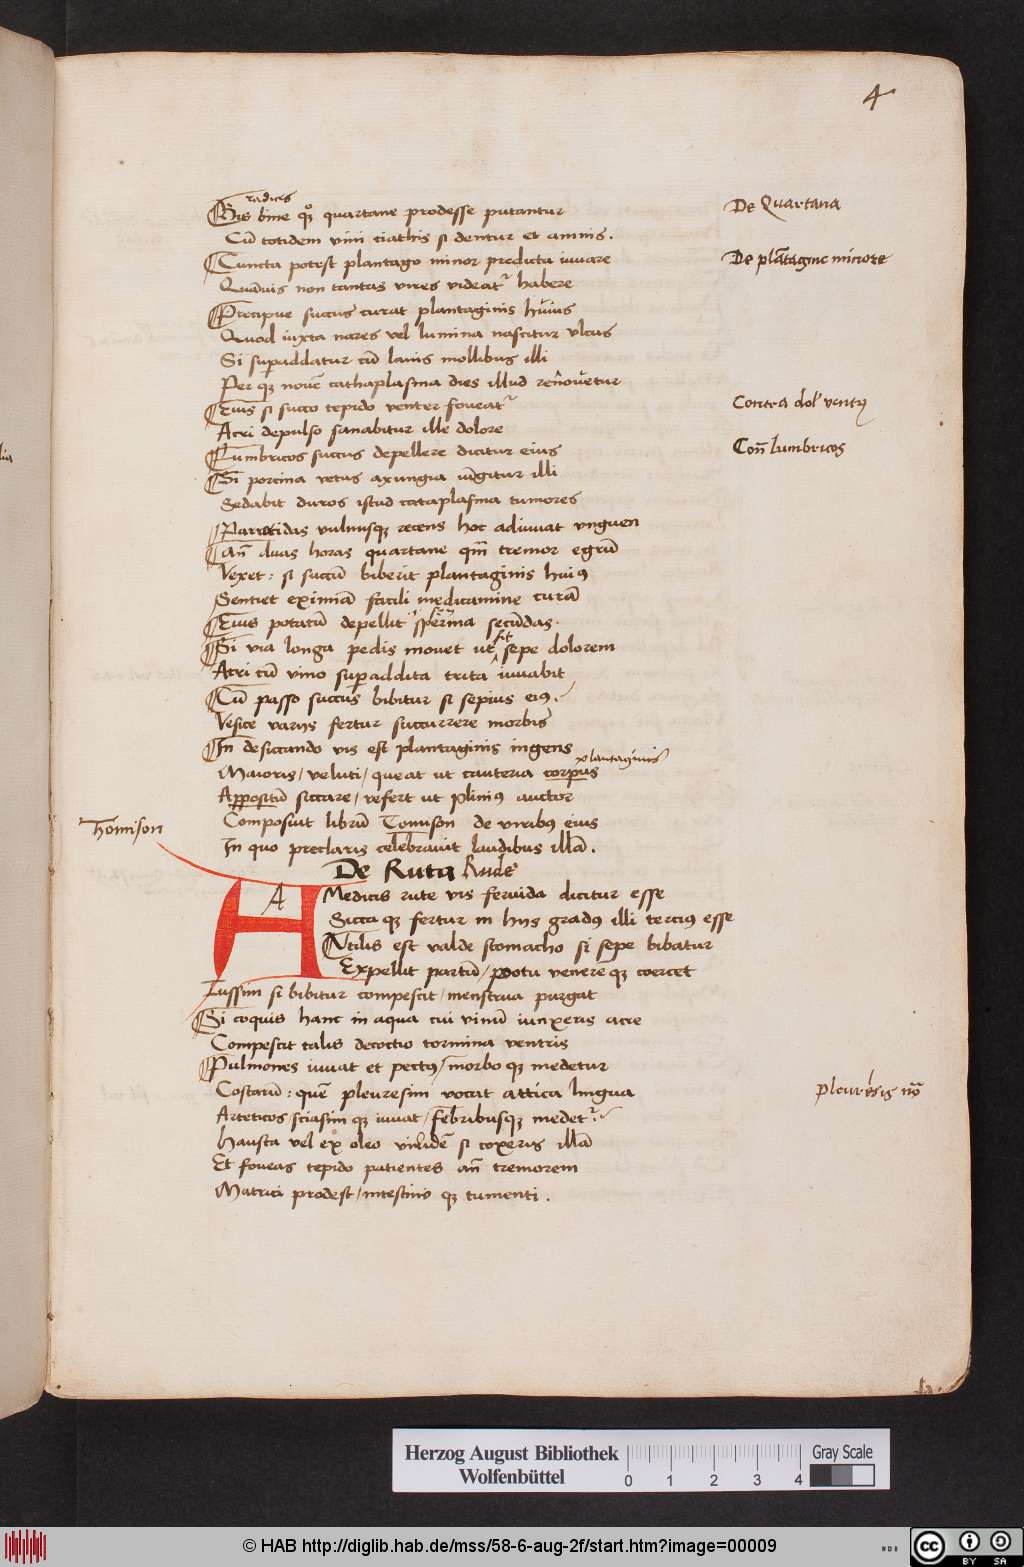 4
radices
Bis bine qꝫ quartane prodesse putantur
De Quartana
Cū totidem vini ciathis si dentur et amnis.
Cuncta potest plantago minor predicta iuuare
De plātagine minore
Quāuis non tantas vires videatr habere
Precipue succus curat plantaginis huius
Quod iuxta nares vel lumina nascitur vlcus
Si supaddatur cū lanis mollibus illi
Per qꝫ nouē cathaplasma dies illud renouetur
Eius si succo tepido venter foueatr
Contra dol' ventꝫ
Acri depulso sanabitur ille dolore
Lumbricos succus depellere dicitur eius
Con̄ lumbricos
Si porcina vetus axungia iūgitur illi
Sedabit duros istud cataplasma tumores
Parotidas vulnusqꝫ recens hoc adiuuat vnguen
An̄ duas horas quartane qm̄ tremor egrū
Vexet: si succū biberit plantaginis huiꝰ
Sentiet eximiā facili medicamine curā
Eius potatū depellit sperma secūdas.
Si via longa pedis mouet ut fit sepe dolorem
Acri cū vino supaddita trita iuuabit
Cū passo succus bibitur si sepius eiꝰ.
Vesice varijs fertur succurrere morbis
In desiccando vis est plantaginis ingens
plantaginis
Maioris/veluti/queat ut cauteria corpus
Appositū siccare/refert ut pliniꝰ auctor
Composuit librū Tomison de viribꝰ eius
Thomison
In quo preclaris celebrauit laudibus illā.
De Ruta Rude
A Medicis rute vis feruida dicitur esse
Sicca qꝫ fertur in hijs gradꝰ illi terciꝰ esse
Vtilis est valde stomacho si sepe bibatur
Expellit partū/potu venere qꝫ coercet
Tussim si bibitur compescit/menstrua purgat
Si coquis hanc in aqua cui vinū iunxeris acre
Compescit talis decoctio tormina ventris
Pulmones iuuat et pectꝰ/morbo qꝫ medetur
Costarū: quē pleuresim vocat attica lingua
pleuresis
Arteticos sciasim qꝫ iuuat/febribusqꝫ medetr
Hausta vel ex oleo viridē si coxeris illā
Et foueas tepido patientes an̄ tremorem
Matrici prodest/intestino qꝫ tumenti.
Herzog August Bibliothek
Wolfenbüttel
0 1 2 3 4
Gray Scale
© HAB http://diglib.hab.de/mss/58-6-aug-2f/start.htm?image=00009
WDB
cc BY SA